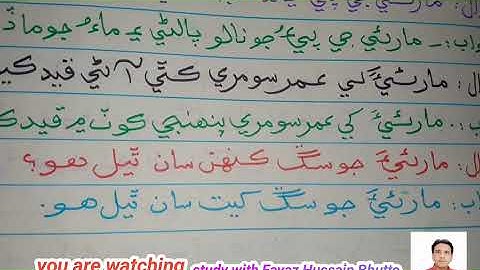 واب:ـ مارئي جي پيءُ جو نالو پالڻي ۽ ماءُ جو ماڏ
ال: مارئيءَ کي عمر سومري ڪٿي آڻي قيد ڪي
اب:ـ مارئيءَ کي عمر سومري پنهنجي ڪوٽ ۾ قيد ڪ
ال: مارئيءَ جو سڱ ڪنهن سان ٿيل هو؟
اب: مارئيءَ جو سڱ کيت سان ٿيل هو.
you are watching study with Fayaz Hussain Bhutto